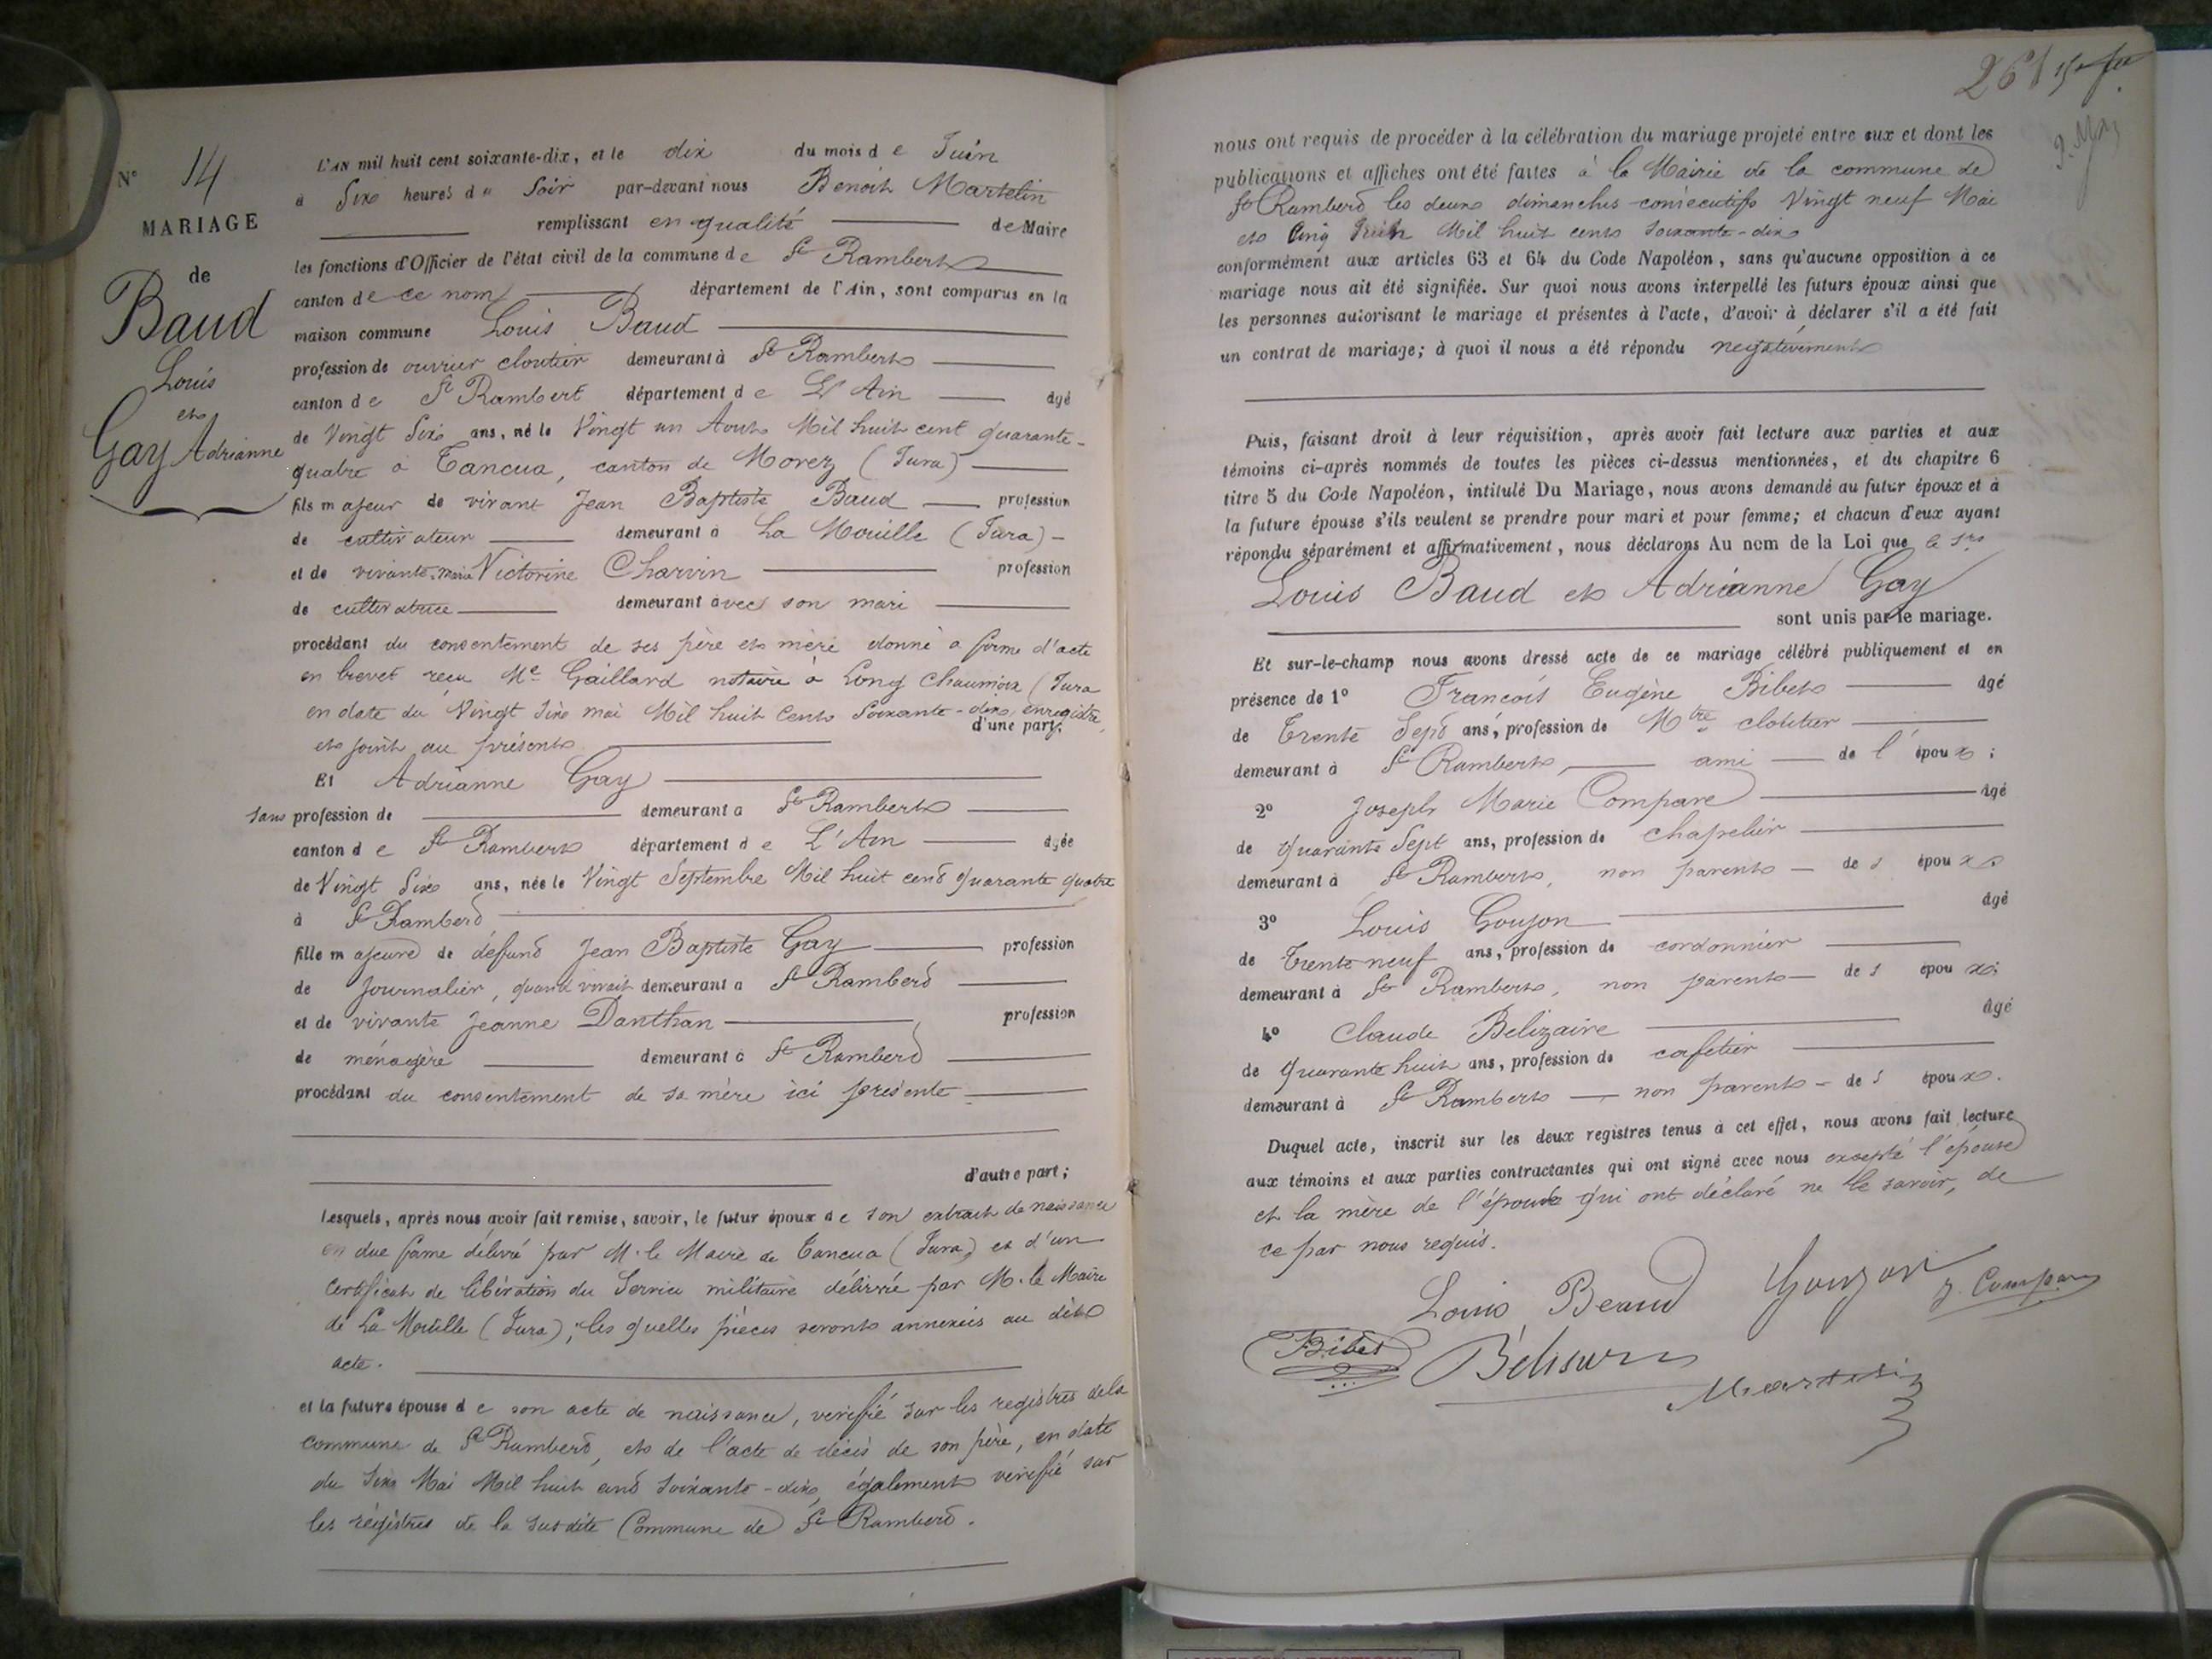 N° 14
MARIAGE
de
Baud
Louis
et
Gay Adrianne
L'AN mil huit cent soixante-dix, et le dix du mois de Juin
à Six heures du Soir par-devant nous Benoit Martelin
remplissant en qualité de Maire
les fonctions d'Officier de l'état civil de la commune de St Rambert
canton de ce nom département de l'Ain, sont comparus en la
maison commune Louis Baud
profession de ouvrier cloutier demeurant à St Rambert
canton de St Rambert département de L'Ain âgé
de Vingt Six ans, né le Vingt un Aout Mil huit cent quarante-
quatre à Tancua, canton de Morez (Jura)
fils majeur de vivant Jean Baptiste Baud profession
de cultivateur demeurant à La Mouille (Jura) -
et de vivante Marie Victorine Charvin profession
de cultivatrice demeurant avec son mari
procédant du consentement de ses père et mère donné a forme d'acte
en brevet reçu Me Gaillard notaire à Long Chaumois (Jura
en date du Vingt Six mai Mil huit Cent Soixante-dix, enregistré
d'une part,
et joint au présent
Et Adrianne Gay
sans profession de demeurant à St Rambert
canton de St Rambert département de L'Ain âgée
de Vingt Six ans, née le Vingt Septembre Mil huit cent quarante quatre
à St Rambert
fille majeure de défunt Jean Baptiste Gay profession
de Journalier, quand vivait demeurant à St Rambert
et de vivante Jeanne Danthan profession
de ménagère demeurant à St Rambert
procédant du consentement de sa mère ici présente
d'autre part;
Lesquels, après nous avoir fait remise, savoir, le futur époux de son extrait de naissance
en due forme délivré par M. le Maire de Tancua (Jura) et d'un
certificat de libération du Service militaire délivré par M. le Maire
de La Mouille (Jura), les quelles pièces seront annexées au dit
acte.
et la future épouse de son acte de naissance, vérifié sur les registres de la
commune de St Rambert, et de l'acte de décès de son père, en date
du Six Mai Mil huit cent soixante-dix, également vérifié sur
les régistres de la susdite Commune de St Rambert.
26
nous ont requis de procéder à la célébration du mariage projeté entre eux et dont les
publications et affiches ont été faites à la Mairie de la commune de
St Rambert les deux dimanches consécutifs Vingt neuf Mai
et Cinq Juin Mil huit cent soixante-dix
conformément aux articles 63 et 64 du Code Napoléon, sans qu'aucune opposition à ce
mariage nous ait été signifiée. Sur quoi nous avons interpellé les futurs époux ainsi que
les personnes autorisant le mariage et présentes à l'acte, d'avoir à déclarer s'il a été fait
un contrat de mariage; à quoi il nous a été répondu négativement
Puis, faisant droit à leur réquisition, après avoir fait lecture aux parties et aux
témoins ci-après nommés de toutes les pièces ci-dessus mentionnées, et du chapitre 6
titre 5 du Code Napoléon, intitulé Du Mariage, nous avons demandé au futur époux et à
la future épouse s'ils veulent se prendre pour mari et pour femme; et chacun d'eux ayant
répondu séparément et affirmativement, nous déclarons Au nom de la Loi que le
Louis Baud et Adrianne Gay
sont unis par le mariage.
Et sur-le-champ nous avons dressé acte de ce mariage célébré publiquement et en
présence de 1° Francois Eugène Bibet âgé
de Trente Sept ans, profession de Mtre cloutier
demeurant à St Rambert, ami de l'époux;
2° Joseph Marie Compare âgé
de quarante Sept ans, profession de chapelier
demeurant à St Rambert, non parent de s époux
3° Louis Goujon âgé
de Trente neuf ans, profession de cordonnier
demeurant à St Rambert, non parent de s époux;
4° Claude Belizaire âgé
de quarante huit ans, profession de cafetier
demeurant à St Rambert non parent de s époux.
Duquel acte, inscrit sur les deux registres tenus à cet effet, nous avons fait lecture
aux témoins et aux parties contractantes qui ont signé avec nous excepté l'épouse
et la mère de l'épouse qui ont déclaré ne le savoir, de
ce par nous requis.
Louis Beaud Goujon J. Compare
Bibet Bélisaire
Martelin